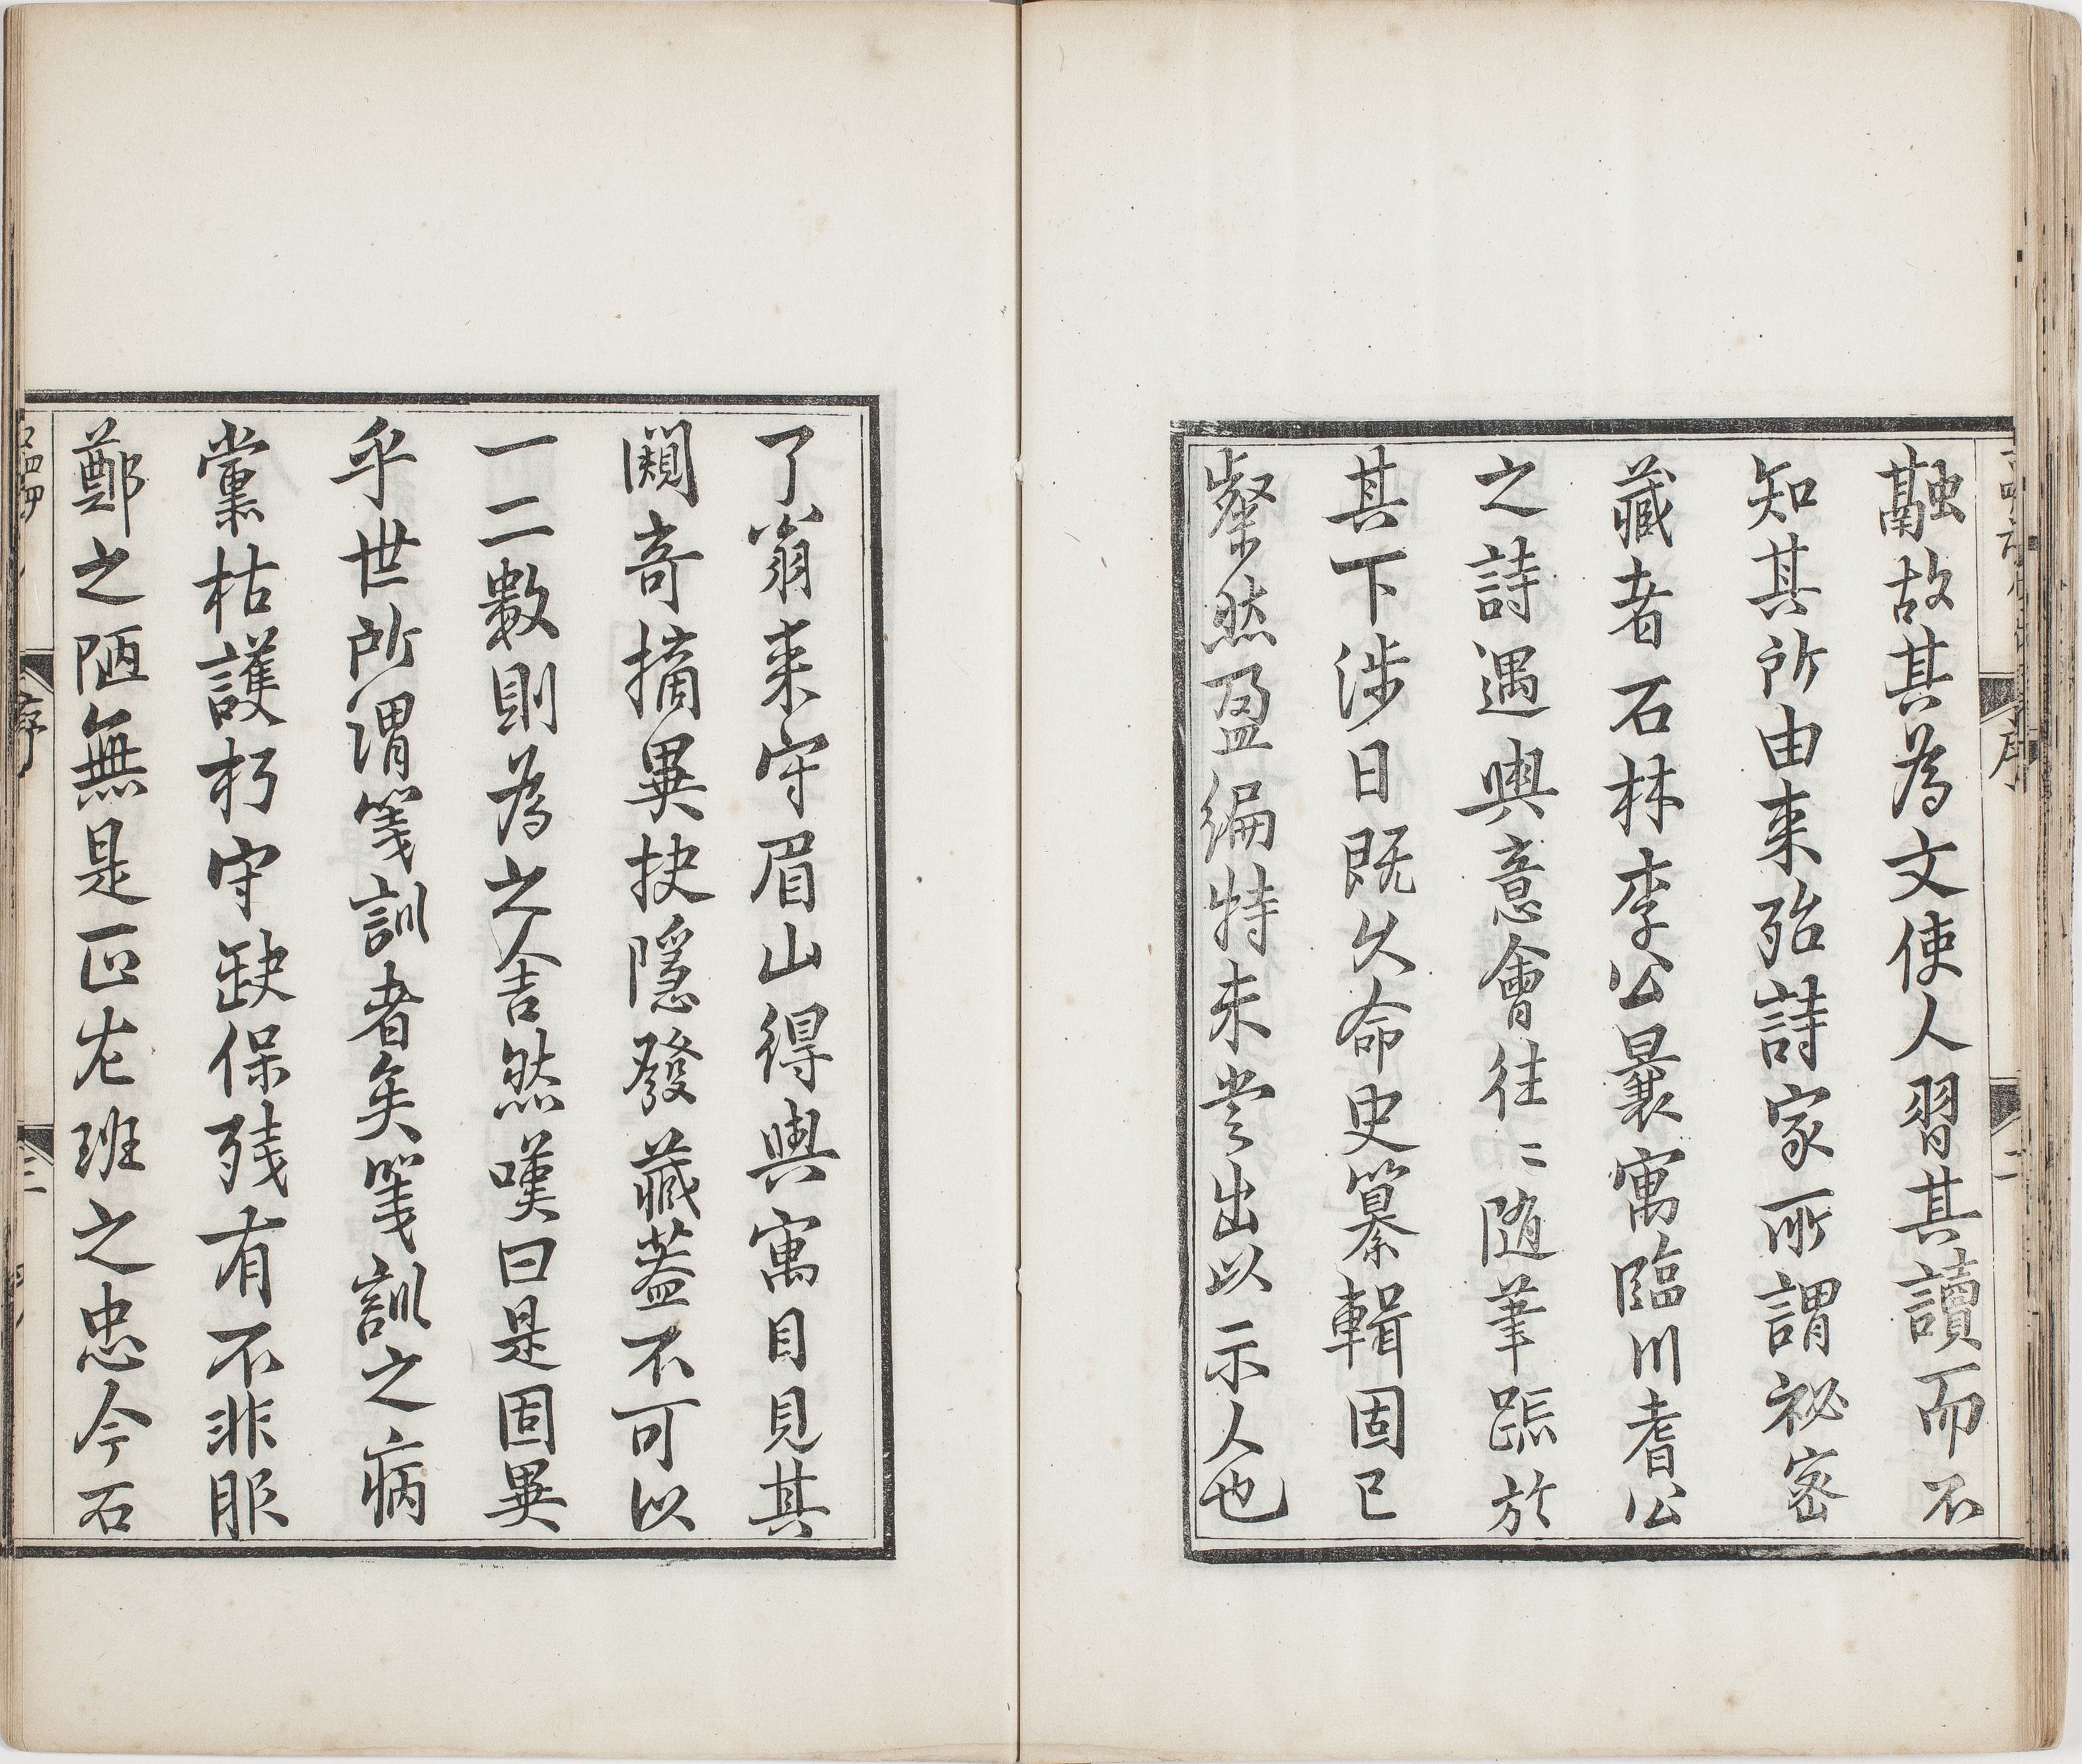 融故其為文使人習其讀而不
知其所由來殆詩家所謂祕密
藏者石林李公曩寓臨川耆公
之詩遇與意會徃〻隨筆䟽於
其下涉日既久命史纂輯固已
粲然盈編特未嘗出以示人也
了翁來守眉山得與寓目見其
闚奇摘異抉隱發藏蓋不可以
一二數則為之舍然嘆曰是固異
乎世所謂箋訓者矣箋訓之病
黨枯護朽守缺保殘有不非服
鄭之陋無是正左班之忠今石
序
三
序
二